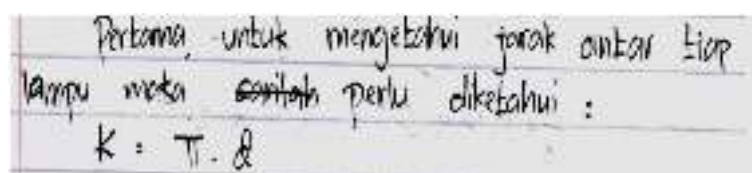 Pertama, untuk mengetahui jarak antar tiap
lampu maka carilah perlu diketahui :
K = π . d